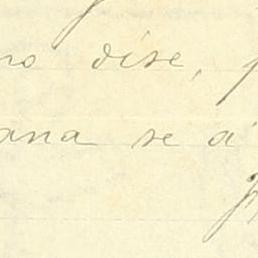 no dise,
ana se a